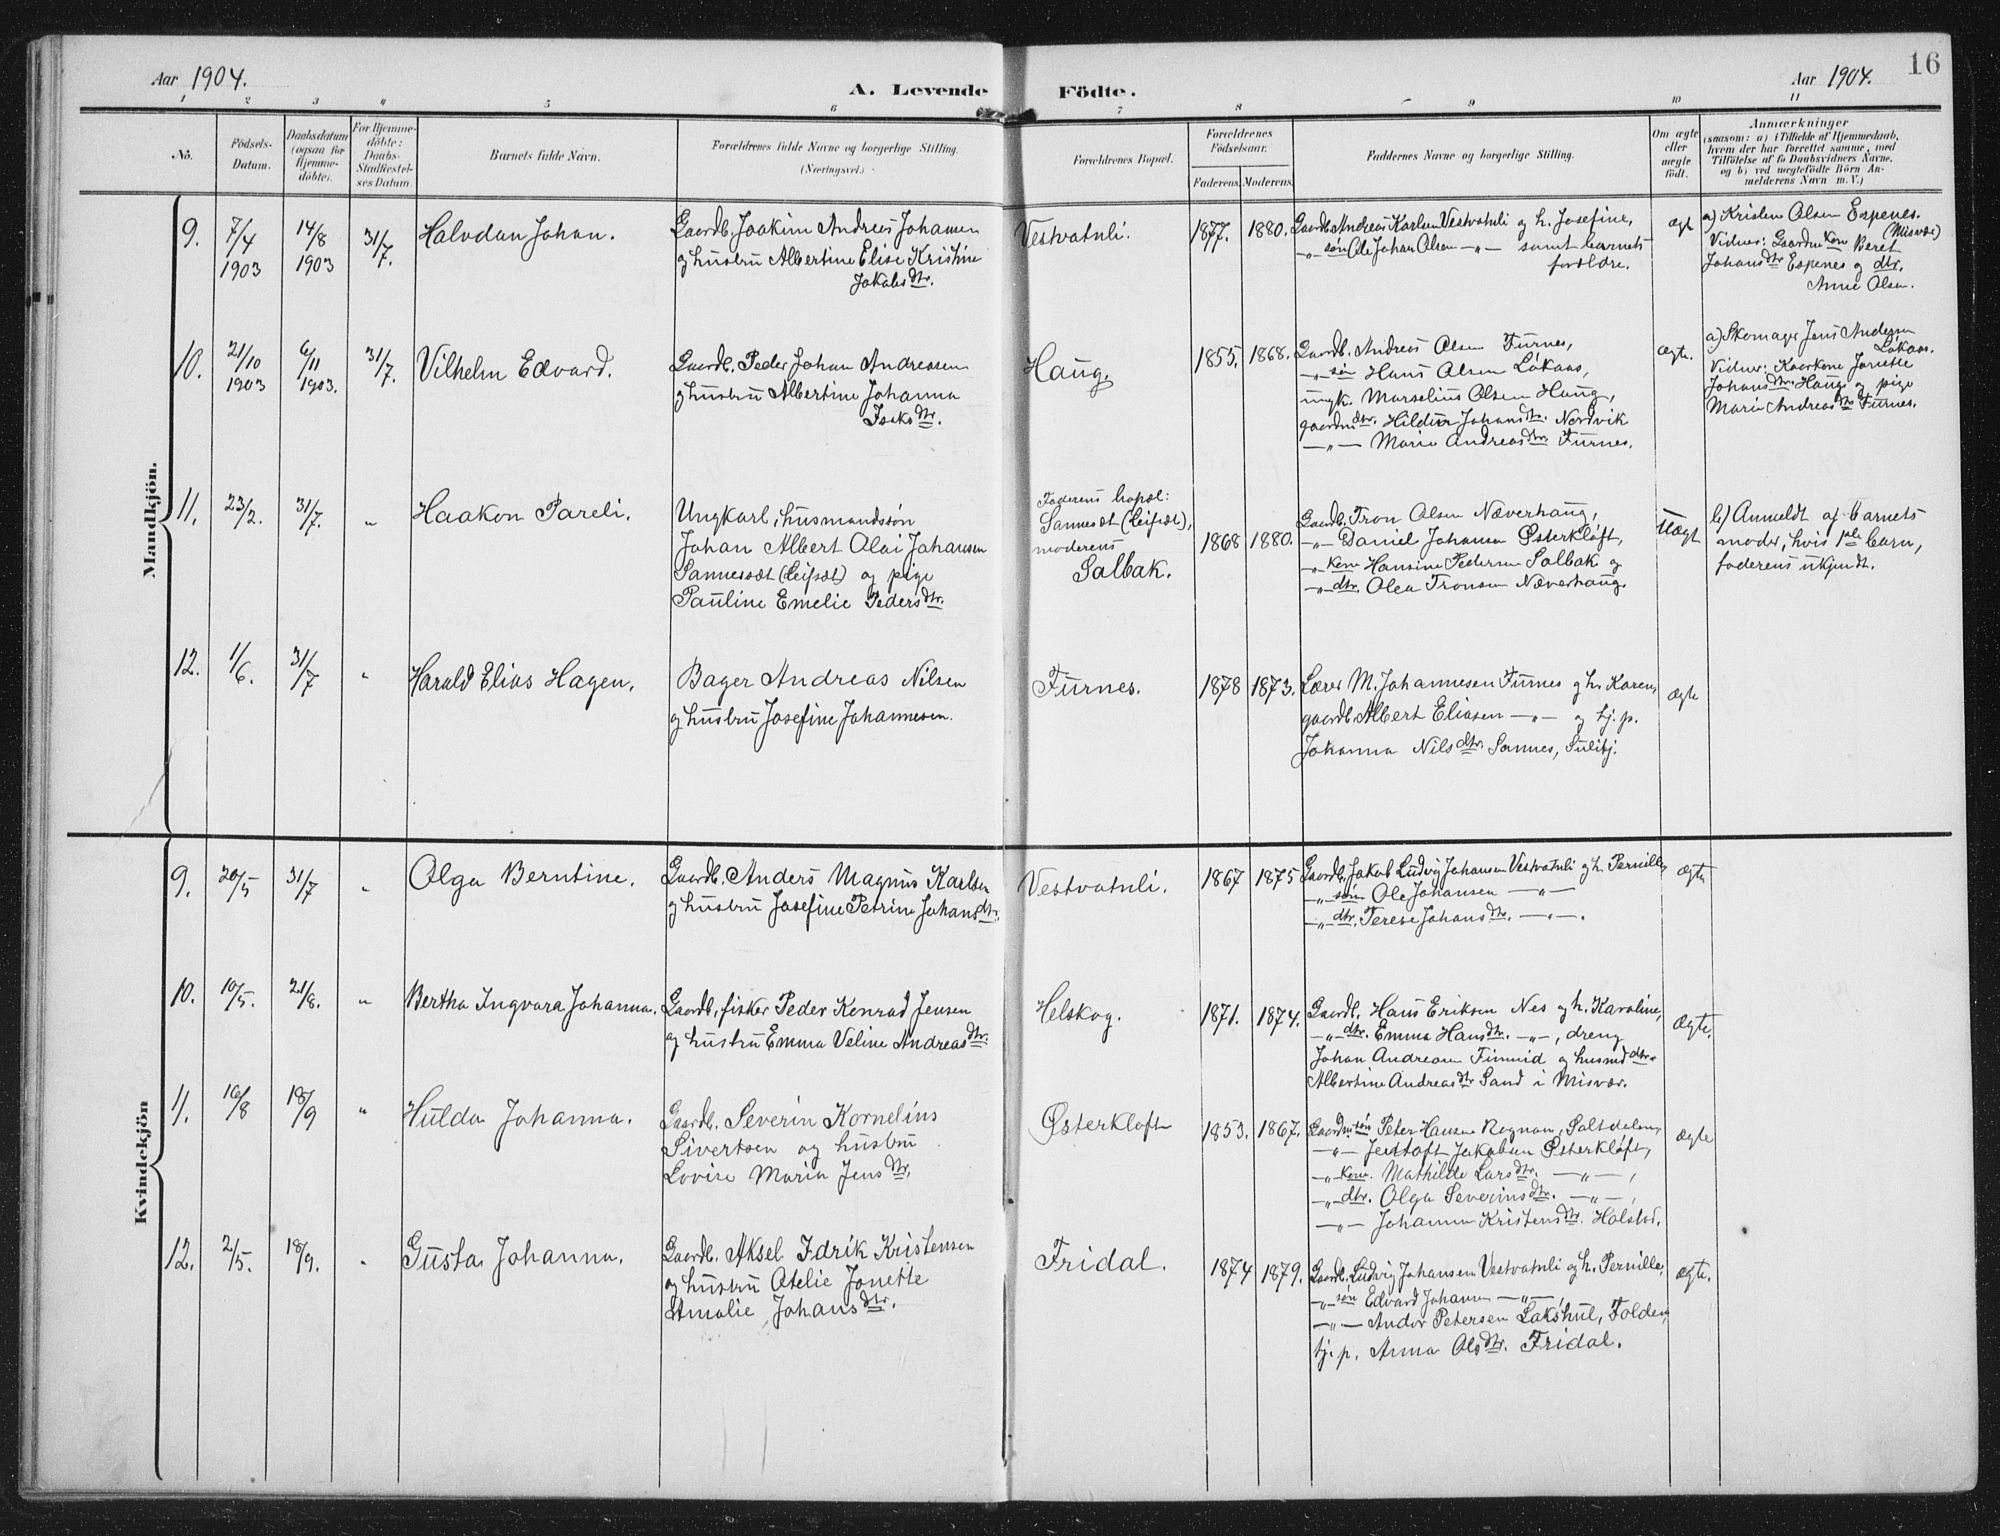 16
Aar 1904.
A. Levende Födte.
Aar 1904.
1 2 3 4 5 6 7 8 9 10 11
No.
Födsels-Datum.
Daabsdatum (ogsaa for Hjemmedöbte).
For Hjemmedöbte: Daabs-Stadfæstelses Datum
Barnets fulde Navn.
Forældrenes fulde Navne og borgerlige Stilling.
(Næringsvei.)
Forældrenes Bopæl.
Forældrenes Födselsaar.
Faderens. Moderens.
Faddernes Navne og borgerlige Stilling.
Om ægte eller uægte födt.
Anmærkninger
(saasom: a) i Tilfælde af Hjemmedaab,
hvem der har forrettet samme, med
Tilföielse af to Daabsvidners Navne,
og b) ved uægtefödte Börn An-
melderens Navn m. V.)
Mandkjön.
9. 7/4 1903 14/8 1903 31/7. Halvdan Johan.
Gaardb. Joakim Andreas Johansen
og hustru Albertine Elise Kristine
Jakobsdtr.
Vestvatnli. 1877. 1880.
Gaardb. Andreas Karlsen Vestvatnli og h. Josefine,
-"- søn Ole Johan Olsen -"- samt barnets
forældre.
ægte
a) Kristen Olsen Espenes.
(Misvær)
Vidner: Gaardm.kone Beret
Johansdtr Espenes og dtr.
Anne Olsen.
10. 21/10 1903 6/11 1903. 31/7. Vilhelm Edvard.
Gaardb. Peder Johan Andreasen
og hustru Albertine Johanna
Isaksdtr.
Haug. 1855. 1868.
Gaardb. Andreas Olsen Furnes,
-"- søn Hans Olsen Løkaas,
ungk. Marselius Olsen Haug,
gaardmdtr. Hildur Johansdtr. Nordvik
-"- Marie Andreasdtr. Furnes.
ægte.
a) Skomager Jens Andersen
Løkaas.
Vidner: Kaarkone Jonette
Johansdtr. Haug og pige
Marie Andreasdtr Furnes.
11. 23/2. 31/7. " Haakon Pareli.
Ungkarl, husmandssøn
Johan Albert Olai Johansen
Sannessæt (Leifsæt) og pige
Pauline Emelie Pedersdtr.
Faderens bopæl:
Sannesæt (Leifsæt),
moderens
Salbak.
1868 1880.
Gaardb. Tron Olsen Næverhaug,
-"- Daniel Johansen Østerkløft,
-"- kone Hansine Pedersen Salbak og
-"- dtr. Olea Tronsen Næverhaug.
Uægte
b) Anmeldt af barnets
moder, hvis 1ste barn,
faderens ukjendt.
12. 1/6. 31/7 " Harald Elias Hagen.
Bager Andreas Nilsen
og hustru Josefine Johannesen.
Furnes. 1878 1873.
Lærer M. Johannesen Furnes og h. Karen,
gaardb. Albert Eliasen -"- og tj. p.
Johanna Nilsdtr. Sannes, Sulitj.
ægte
Kvindekjön
9. 20/5 31/7 " Olga Berntine.
Gaardb. Anders Magnus Karlsen
og hustru Josefine Petrine Johansdtr.
Vestvatnli. 1867 1875
Gaardb. Jakob Ludvig Johansen Vestvatnli og h. Pernille,
-"- søn Ole Johansen -"-
-"- dtr. Terese Johansdtr. -"-.
ægte
10. 10/5. 21/8. " Bertha Ingvara Johanna.
Gaardb., fisker Peder Konrad Jensen
og hustru Emma Veline Andreasdtr.
Helskog. 1871. 1874.
Gaardb. Hans Eriksen Nes og h. Karoline,
-"- dtr. Emma Hansdtr. -"-, dreng
Johan Andreasen Finneid og husmdtr.
Albertine Andreasdtr Sand i Misvær.
Ægte.
11. 16/8 18/9 " Hulda Johanna.
Gaardb. Severin Kornelius
Sivertsen og hustru
Lovise Maria Jensdtr.
Østerkløft 1853. 1867.
Gaardm.søn Peter Hansen Rognan, Saltdalen,
-"- Jentoft Jakobsen Østerkløft,
-"- kone Mathilde Larsdtr. -"-,
-"- dtr. Olga Severinsdtr. -"-,
-"- Johanna Kristensdtr. Halstad.
Ægte
12. 2/5. 18/9. " Gusta Johanna.
Gaardb. Aksel Idrik Kristensen
og hustru Otelie Jonette
Amalie Johansdtr.
Fridal. 1874 1879.
Gaardb. Ludvig Johansen Vestvatnli og h. Pernille,
-"- søn Edvard Johansen -"-,
-"- Andor Petersen Lakshul, Folden,
tj. p. Anna Olsdtr. Fridal.
Ægte.